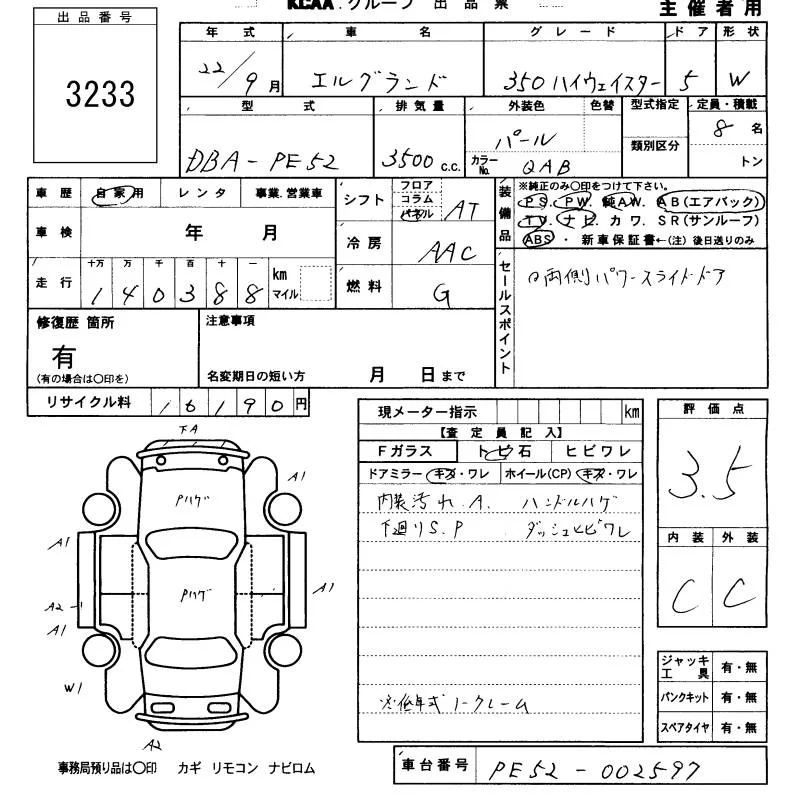 KCAA.グループ 出品票
主催者用
出品番号
3233
年式 車名 グレード ドア 形状
22/9月 エルグランド 350ハイウェイスター 5 W
型式 排気量 外装色 色替 型式指定 定員・積載
類別区分
DBA-PE52 3500c.c. パール 8名
カラーNo. QAB トン
車歴 自家用 レンタ 事業.営業車
車検 年 月
走行 十万 万 千 百 十 一
1 4 0 3 8 8 km マイル
シフト フロア コラム パネル AT
冷房 AAC
燃料 G
装備品
※純正のみ〇印をつけて下さい。
PS. PW. 純AW. AB(エアバック)
TV. ナビ. カワ. SR(サンルーフ)
ABS・新車保証書←(注)後日送りのみ
セールスポイント
両側パワースライドドア
修復歴 箇所
有
(有の場合は〇印を)
注意事項
名変期日の短い方 月 日まで
リサイクル料 16190円
現メーター指示 km
【査定員記入】
Fガラス トビ石 ヒビワレ
ドアミラー キズ・ワレ ホイール(CP) キズ・ワレ
内装汚れ A. ハンドルハゲ
下廻りS.P ダッシュヒビワレ
※低年式ノークレーム
評価点
3.5
内装 外装
C C
ジャッキ工具 有・無
パンクキット 有・無
スペアタイヤ 有・無
下A
A1
Pハゲ
A1
Pハゲ
A1
A2
A1
W1
A2
事務局預り品は〇印 カギ リモコン ナビロム
車台番号 PE52-002597